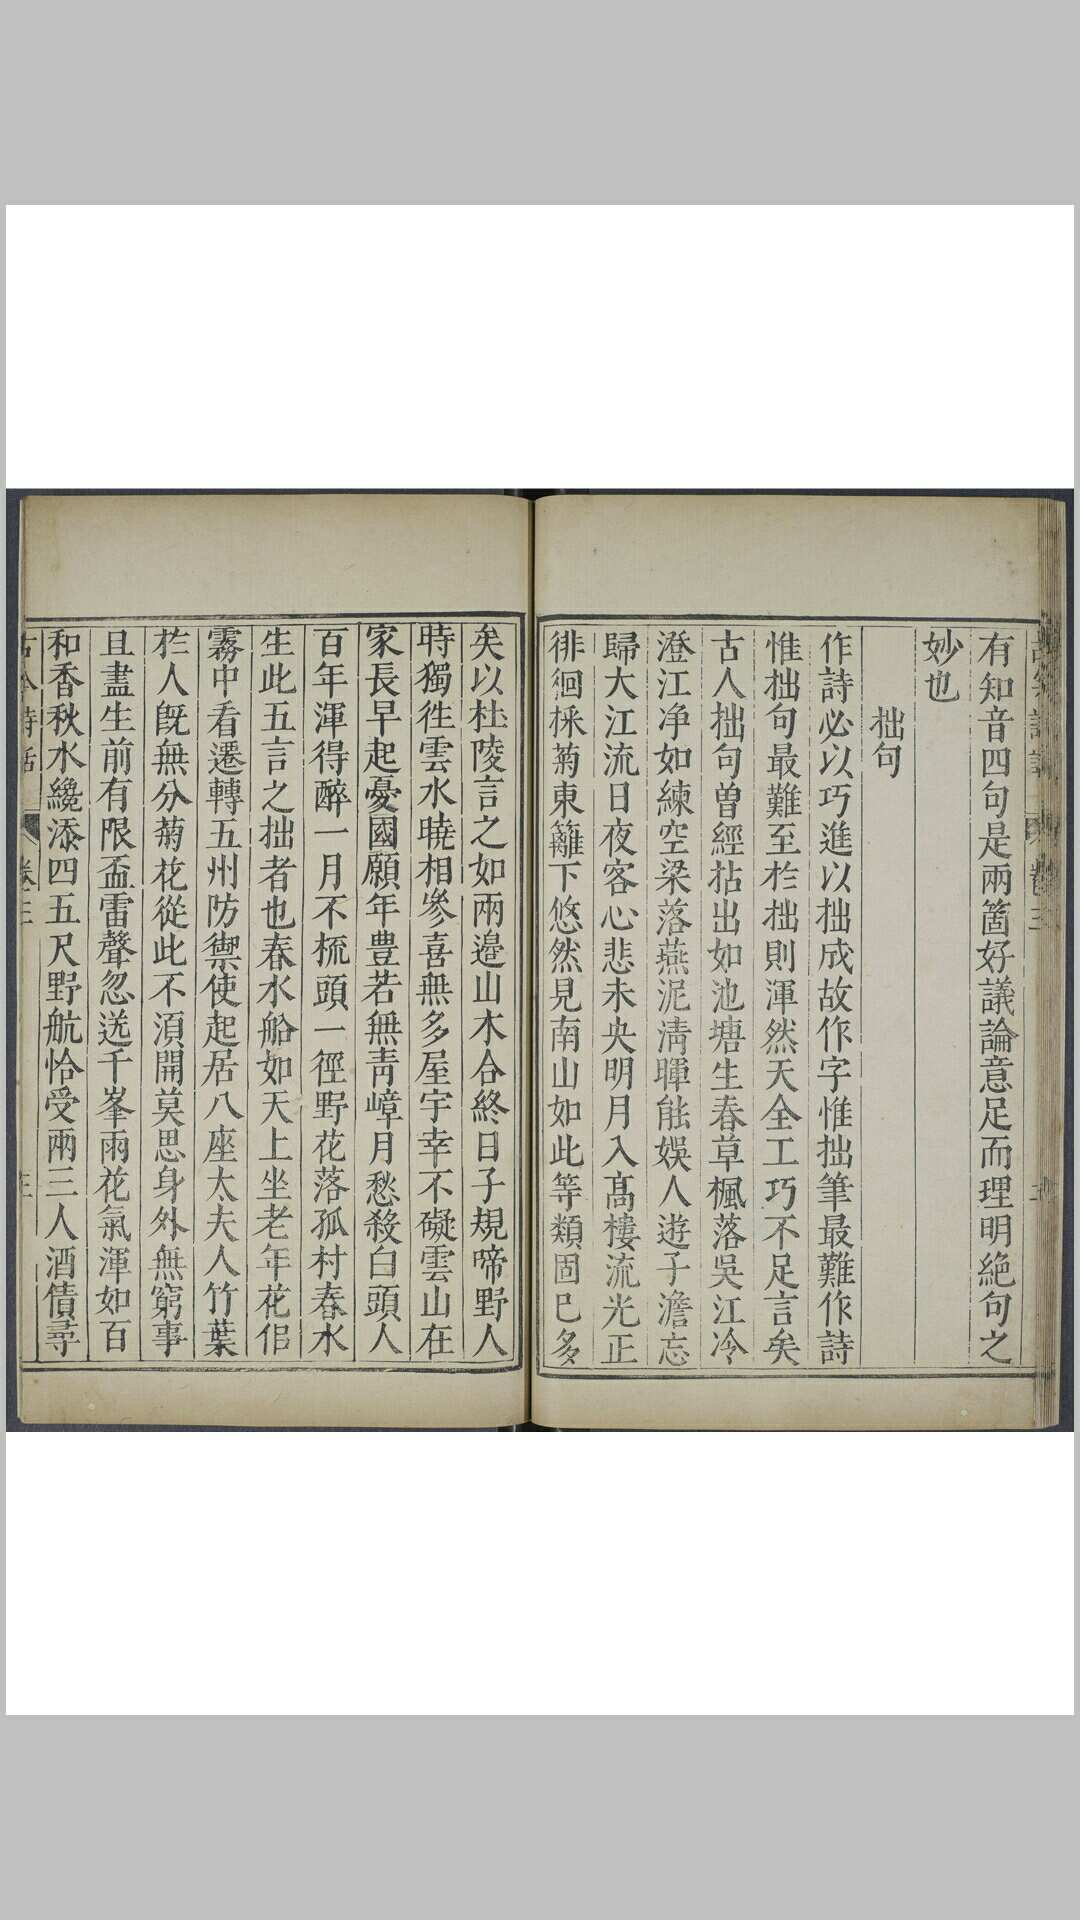 有知音四句是兩箇好議論意足而理明絶句之
妙也
拙句
作詩必以巧進以拙成故作字惟拙筆最難作詩
惟拙句最難至於拙則渾然天全工巧不足言矣
古人拙句曽經拈出如池塘生春草楓落吳江冷
澄江净如練空梁落燕泥淸暉能娛人遊子澹忘
歸大江流日夜客心悲未央明月入髙樓流光正
徘徊採菊東籬下悠然見南山如此等類固已多
矣以杜陵言之如兩邉山木合終日子規啼野人
時獨徃雲水曉相參喜無多屋宇幸不礙雲山在
家長早起憂國願年豊若無靑嶂月愁殺白頭人
百年渾得醉一月不梳頭一徑野花落孤村春水
生此五言之拙者也春水船如天上坐老年花佀
霧中看遷轉五州防禦使起居八座太夫人竹葉
於人旣無分菊花從此不湏開莫思身外無窮事
且盡生前有限盃雷聲忽送千峯雨花氣渾如百
和香秋水纔添四五尺野航恰受兩三人酒債尋
卷三